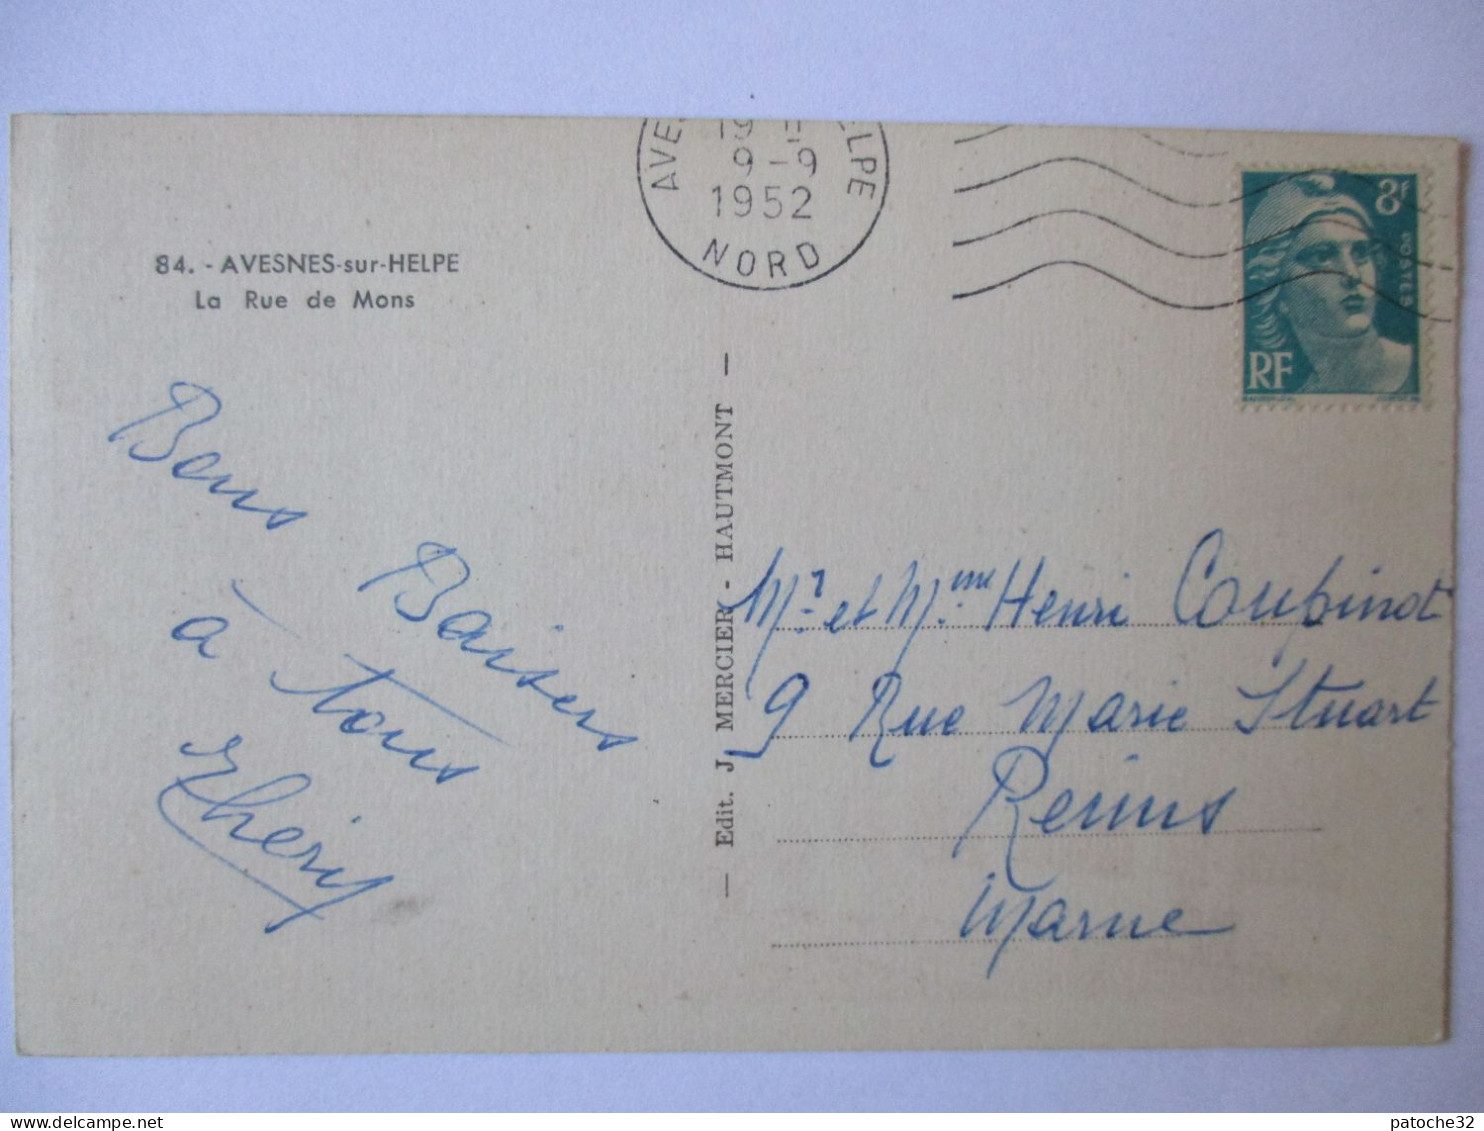 84. - AVESNES-sur-HELPE
La Rue de Mons
AVES ELPE
19
9 - 9
1952
NORD
8f
POSTES
RF
Bons Baisers
à tous
— Edit. J. MERCIER - HAUTMONT —
Mr et Mme Henri Coupinot
9 Rue Marie Stuart
Reims
Marne
patoche32